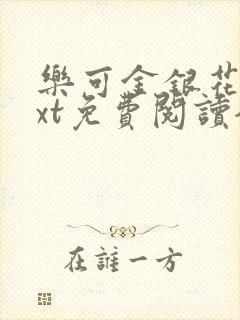 樂可金銀花
xt免費閱讀
在誰一方